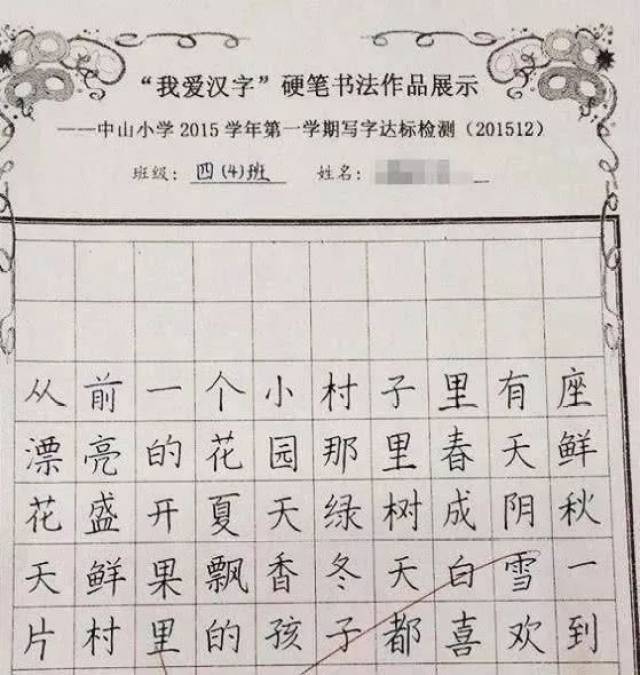 “我爱汉字”硬笔书法作品展示
——中山小学2015学年第一学期写字达标检测（201512）
班级：四(4)班 姓名：
从前一个小村子里有座
漂亮的花园那里春天鲜
花盛开夏天绿树成阴秋
天鲜果飘香冬天白雪一
片村里的孩子都喜欢到